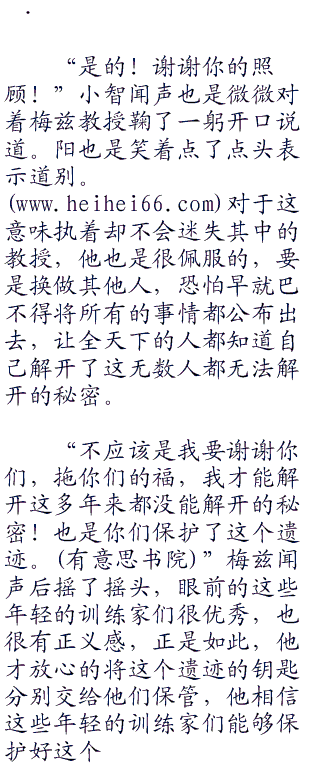 .
“是的！谢谢你的照
顾！”小智闻声也是微微对
着梅兹教授鞠了一躬开口说
道。阳也是笑着点了点头表
示道别。
(www.heihei66.com)对于这
意味执着却不会迷失其中的
教授，他也是很佩服的，要
是换做其他人，恐怕早就巴
不得将所有的事情都公布出
去，让全天下的人都知道自
己解开了这无数人都无法解
开的秘密。
“不应该是我要谢谢你
们，拖你们的福，我才能解
开这多年来都没能解开的秘
密！也是你们保护了这个遗
迹。(有意思书院)”梅兹闻
声后摇了摇头，眼前的这些
年轻的训练家们很优秀，也
很有正义感，正是如此，他
才放心的将这个遗迹的钥匙
分别交给他们保管，他相信
这些年轻的训练家们能够保
护好这个